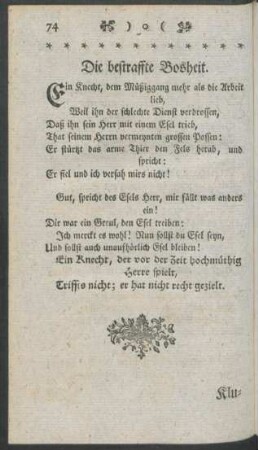 74 ) o (
Die bestraffte Bosheit.
Ein Knecht, dem Müßiggang mehr als die Arbeit
lieb,
Weil ihn der schlechte Dienst verdrossen,
Daß ihn sein Herr mit einem Esel trieb,
That seinem Herrn vermeynten grossen Possen:
Er stürtzt das arme Thier den Fels herab, und
spricht:
Er fiel und ich versah mirs nicht!
Gut, spricht des Esels Herr, mir fällt was anders
ein!
Dir war ein Greul, den Esel treiben:
Ich merckt es wohl! Nun sollst du Esel seyn,
Und sollst auch unaufhörlich Esel bleiben!
Ein Knecht, der vor der Zeit hochmüthig
Herre spielt,
Triffts nicht; er hat nicht recht gezielt.
Klu-